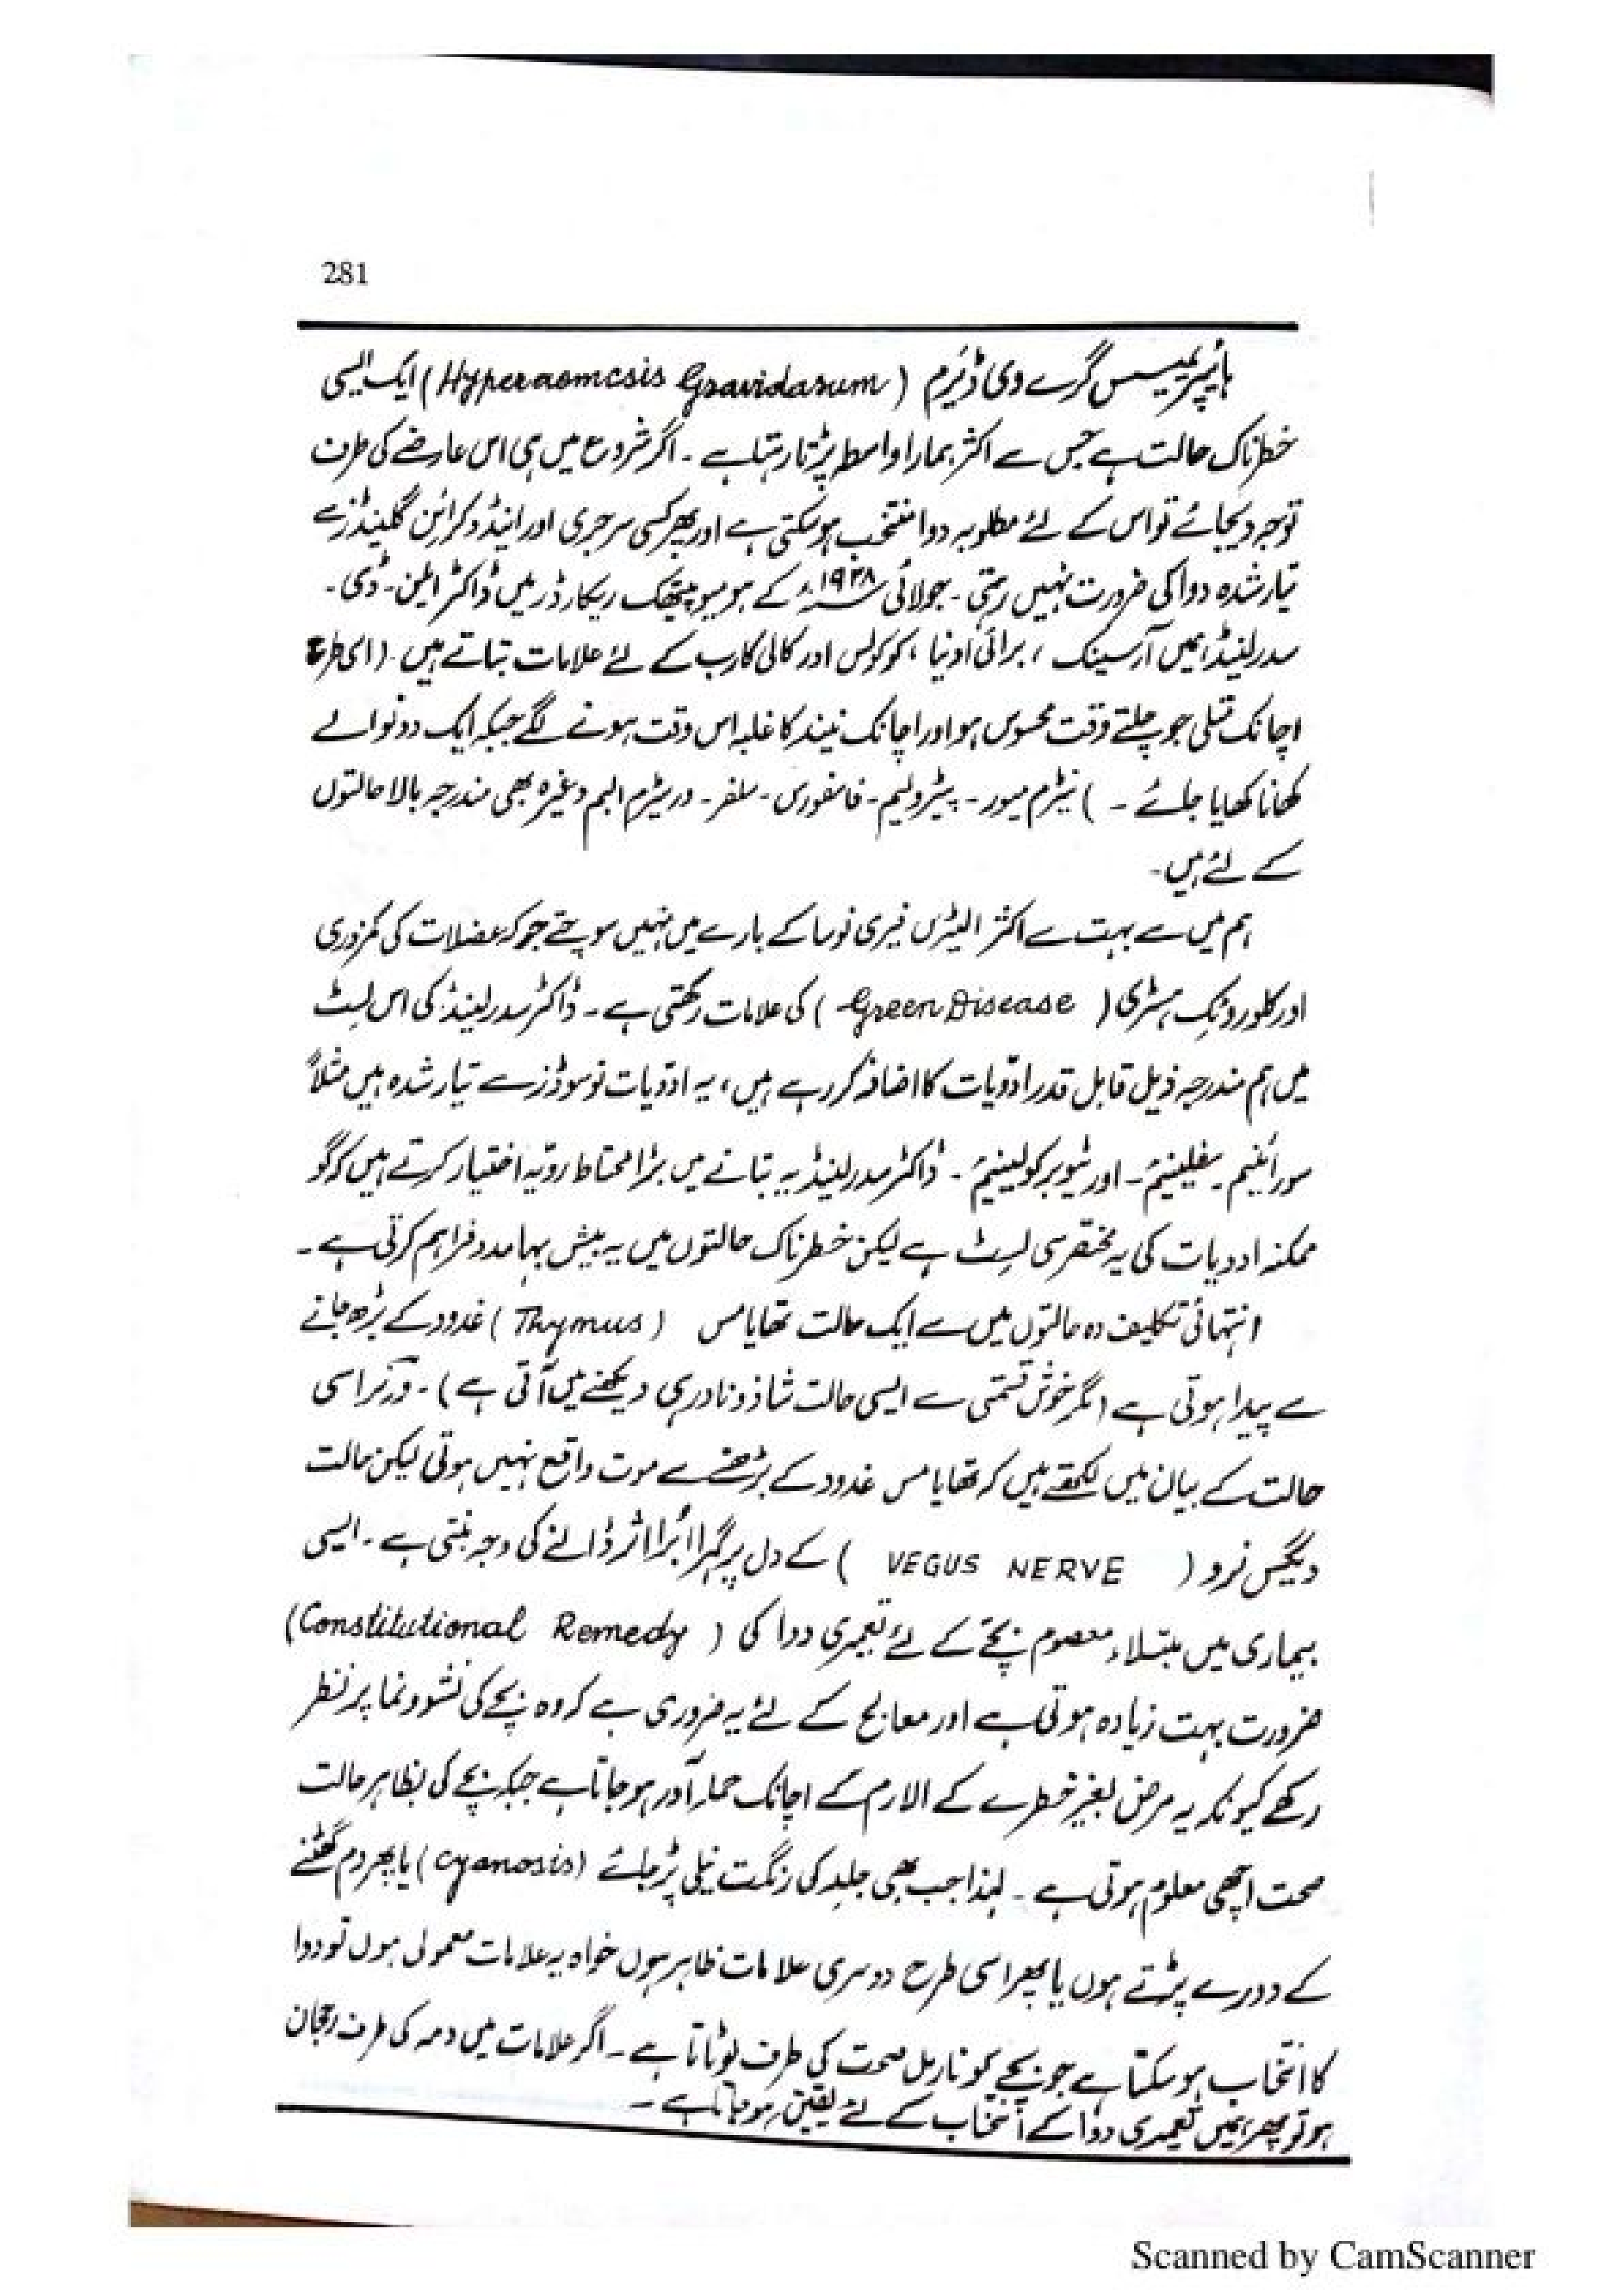 281
ہائپریمیسس گرے وی ڈیرَم ( Hyperaomesis Gravidarum ) ایک ایسی
خطرناک حالت ہے جس سے اکثر ہمارا واسطہ پڑتا رہتا ہے ۔ اگر شروع میں ہی اس عارضے کی طرف
توجہ دیجائے تو اس کے لئے مطلوبہ دوا منتخب ہو سکتی ہے اور پھر کسی سرجری اور اینڈوکرائن گلینڈز سے
تیار شدہ دوا کی ضرورت نہیں رہتی ۔ جولائی ۱۹۳۸ء کے ہومیوپیتھک ریکارڈر میں ڈاکٹر ایلن ۔ ڈی ۔
سدرلینڈ ہمیں آرسینک ، برائی اونیا ، کوکولس اور کالی کارب کے لئے علامات بتاتے ہیں ۔ ( اسی طرح
اچانک متلی جو چلتے وقت محسوس ہو اور اچانک نیند کا غلبہ اس وقت ہونے لگے جبکہ ایک دو نوالے
کھانا کھایا جائے ۔ ) نیٹرم میور ۔ پیٹرولیم ۔ فاسفورس ۔ سلفر ۔ وریٹرم البم وغیرہ بھی مندرجہ بالا حالتوں
کے لئے ہیں ۔
ہم میں سے بہت سے اکثر الیٹرس فیری نوسا کے بارے میں نہیں سوچتے جو کہ عضلات کی کمزوری
اور کلوروٹک ہسٹری ( Green Disease ) کی علامات رکھتی ہے ۔ ڈاکٹر سدرلینڈ کی اس لسٹ
میں ہم مندرجہ ذیل قابل قدر ادویات کا اضافہ کر رہے ہیں ، یہ ادویات نوسوڈز سے تیار شدہ ہیں مثلاً
سورائنیم ۔ سفلینیم ۔ اور ٹیوبرکولینیم ۔ ڈاکٹر سدرلینڈ یہ بتانے میں بڑا محتاط رویہ اختیار کرتے ہیں کہ گو
ممکنہ ادویات کی یہ مختصر سی لسٹ ہے لیکن خطرناک حالتوں میں یہ بیش بہا مدد فراہم کرتی ہے ۔
انتہائی تکلیف دہ حالتوں میں سے ایک حالت تھایامس ( Thymus ) غدود کے بڑھ جانے
سے پیدا ہوتی ہے ( مگر خوش قسمتی سے ایسی حالت شاذ و نادر ہی دیکھنے میں آتی ہے ) ۔ ورنر اسی
حالت کے بیان میں لکھتے ہیں کہ تھایامس غدود کے بڑھنے سے موت واقع نہیں ہوتی لیکن حالت
ویگس نرو ( VEGUS NERVE ) کے دل پر گہرا بُرا اثر ڈالنے کی وجہ بنتی ہے ۔ ایسی
بیماری میں مبتلاء معصوم بچے کے لئے تعمیری دوا کی ( Constitutional Remedy )
ضرورت بہت زیادہ ہوتی ہے اور معالج کے لئے یہ ضروری ہے کہ وہ بچے کی نشوونما پر نظر
رکھے کیونکہ یہ مرض بغیر خطرے کے الارم کے اچانک حملہ آور ہو جاتا ہے جبکہ بچے کی بظاہر حالت
صحت اچھی معلوم ہوتی ہے ۔ لہذا جب بھی جلد کی رنگت نیلی پڑ جائے ( Cyanosis ) یا پھر دم گھٹنے
کے دورے پڑتے ہوں یا پھر اسی طرح دوسری علامات ظاہر ہوں خواہ یہ علامات معمولی ہوں تو دوا
کا انتخاب ہو سکتا ہے جو بچے کو نارمل صحت کی طرف لوٹاتا ہے ۔ اگر علامات میں دمہ کی طرف رجحان
ہو تو پھر ہمیں تعمیری دوا کے انتخاب کے لئے یقین ہو جاتا ہے ۔
Scanned by CamScanner